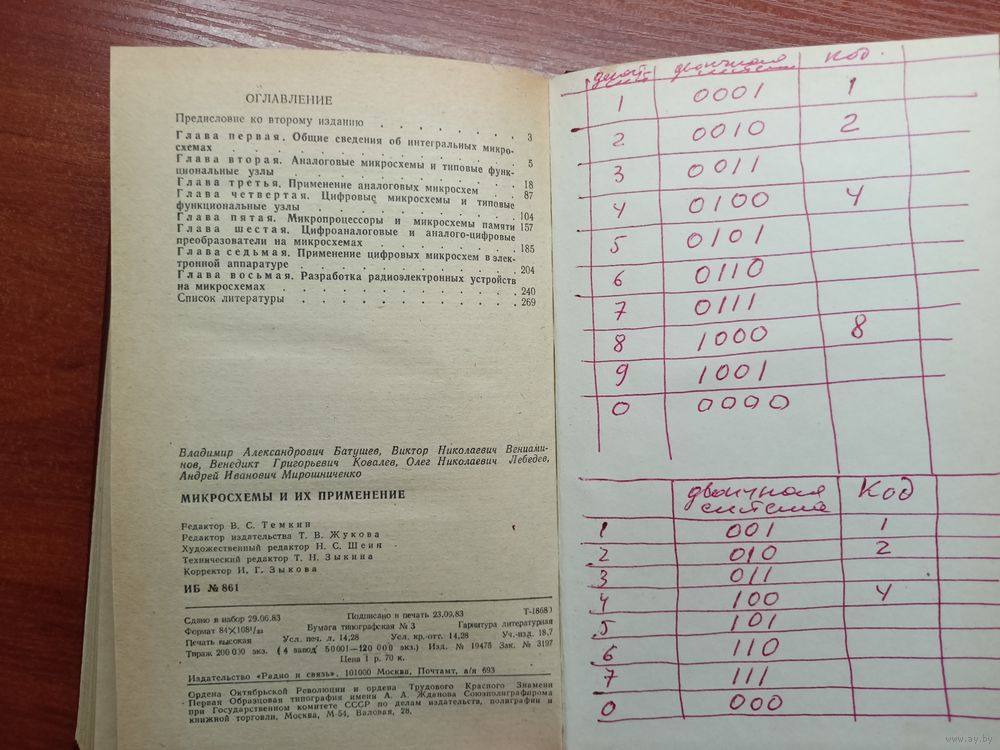 ОГЛАВЛЕНИЕ
Предисловие ко второму изданию . . . . . . . 3
Глава первая. Общие сведения об интегральных микро-
схемах . . . . . . . . . . . . 5
Глава вторая. Аналоговые микросхемы и типовые функ-
циональные узлы . . . . . . . . . . 18
Глава третья. Применение аналоговых микросхем . . 87
Глава четвертая. Цифровые микросхемы и типовые
функциональные узлы . . . . . . . . . 104
Глава пятая. Микропроцессоры и микросхемы памяти 157
Глава шестая. Цифроаналоговые и аналого-цифровые
преобразователи на микросхемах . . . . . . 185
Глава седьмая. Применение цифровых микросхем в элек-
тронной аппаратуре . . . . . . . . . 204
Глава восьмая. Разработка радиоэлектронных устройств
на микросхемах . . . . . . . . . . 240
Список литературы . . . . . . . . . . 269
Владимир Александрович Батушев, Виктор Николаевич Вениами-
нов, Венедикт Григорьевич Ковалев, Олег Николаевич Лебедев,
Андрей Иванович Мирошниченко
МИКРОСХЕМЫ И ИХ ПРИМЕНЕНИЕ
Редактор В. С. Темкин
Редактор издательства Т. В. Жукова
Художественный редактор Н. С. Шеин
Технический редактор Т. Н. Зыкина
Корректор И. Г. Зыкова
ИБ № 861
Сдано в набор 29.06.83 Подписано в печать 23.09.83 Т-18683
Формат 84×108¹/₃₂ Бумага типографская № 3 Гарнитура литературная
Печать высокая Усл. печ. л. 14,28 Усл. кр.-отт. 14,28 Уч.-изд. 18,7
Тираж 200 000 экз. (4 завод 50 001—120 000 экз.) Изд. № 19478 Зак. № 3197
Цена 1 р. 70 к.
Издательство «Радио и связь», 101000 Москва, Почтамт, а/я 693
Ордена Октябрьской Революции и ордена Трудового Красного Знамени
Первая Образцовая типография имени А. А. Жданова Союзполиграфпрома
при Государственном комитете СССР по делам издательств, полиграфии и
книжной торговли, Москва, М-54, Валовая, 28.
двоичная система Код.
1 0001 1
2 0010 2
3 0011
4 0100 4
5 0101
6 0110
7 0111
8 1000 8
9 1001
0 0000
двоичная Код
система
1 001 1
2 010 2
3 011
4 100 4
5 101
6 110
7 111
0 000
www.ay.by